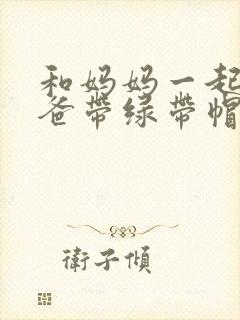 和妈妈一起
爸带绿带帽
衛子傾